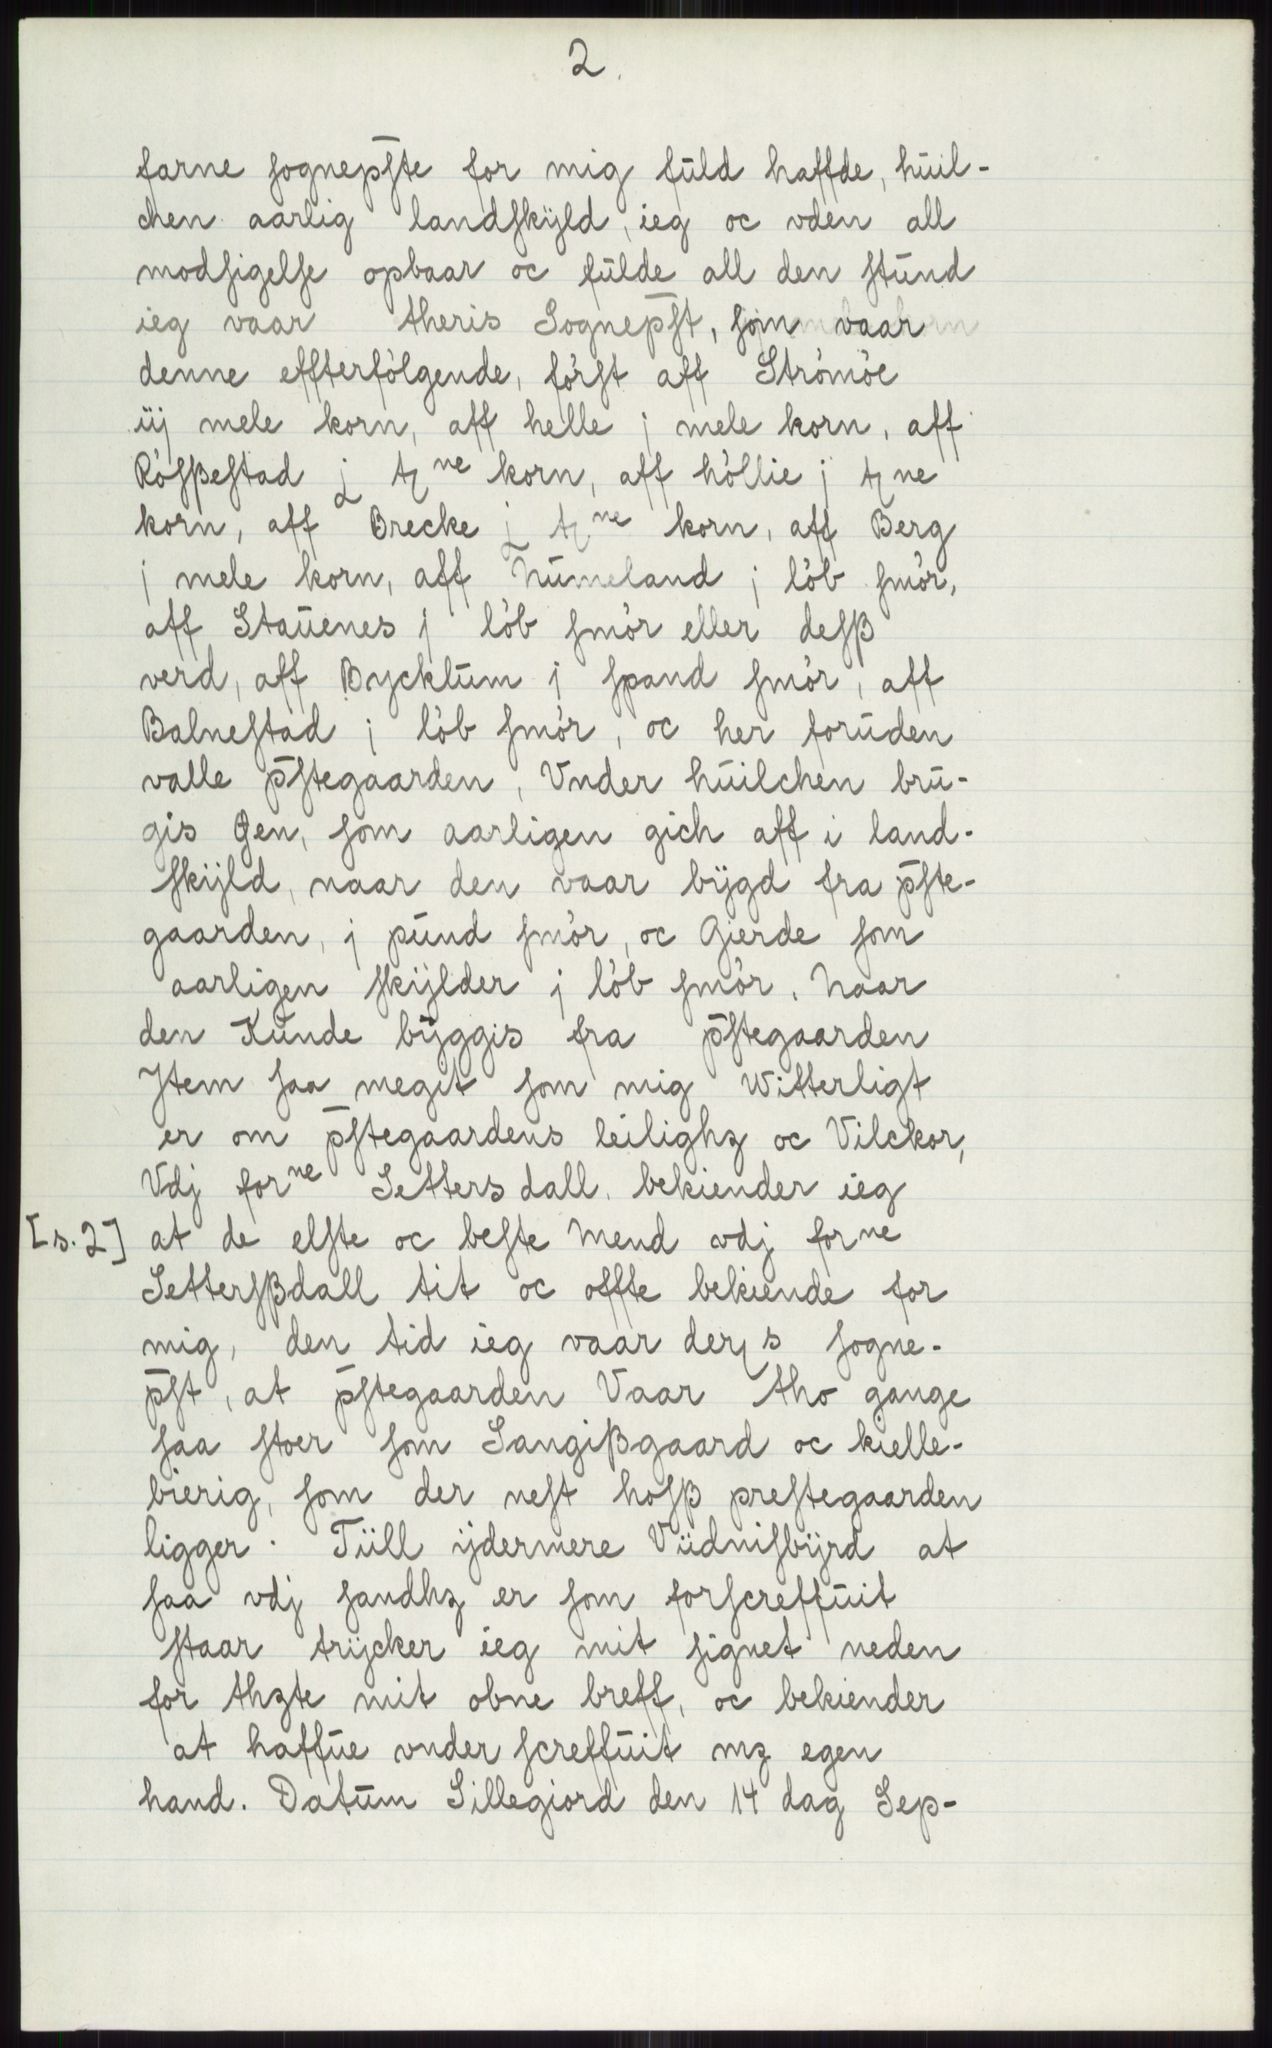 2.
farne sognepste for mig fuld haffde, huil-
chen aarlig landskÿld, ieg oc vden all
modsigelse opbaar oc fulde all den stund
ieg vaar theris Sognepst, som vaar
denne effterfölgende, först aff Strömöe
iij mele korn, aff helle j mele korn, aff
Rösßestad j tne korn, aff höllie j tne
korn, aff Brecke j tne korn, aff Berg
j mele korn, aff Numeland j löb smör,
aff Stauenes j löb smör eller desß
verd, aff Bycklum j spand smör, aff
Balnestad j löb smör, oc her foruden
valle pstegaarden, Vnder huilchen bru-
gis Øen, som aarligen gich aff i land-
skÿld, naar den vaar bÿgd fra pste-
gaarden, j pund smör, oc Gierde som
aarligen skÿlder j löb smör. Naar
den Kunde bÿggis fra pstegaarden
Item saa megit som mig Witterligt
er om pstegaardens leilighz oc Vilckor,
Vdj forne Settersdall. bekiender ieg
[s. 2] at de elste oc beste Mend vdj forne
Settersßdall tit oc offte bekiende for
mig, den tid ieg vaar deris sogne-
pst, at pstegaarden Vaar tho gange
saa stoer som Sangißgaard oc kielle-
bierig, som der nest hosß prestegaarden
ligger. Tiill ÿdermere Viidnisbÿrd at
saa vdj sandhz er som forscreffuit
staar trÿcker ieg mit signet neden
for thzte mit obne breff, oc bekiender
at haffue vnder screffuit mz egen
hand. Datum Sillegiord den 14 dag Sep-